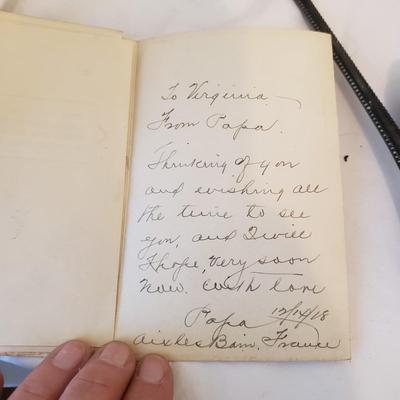 To Virginia
From Papa.
Thinking of you
and wishing all
the time to see
you, and I will
I hope, very soon
now. with love
Papa 12/14/18
Aix les Bain, France